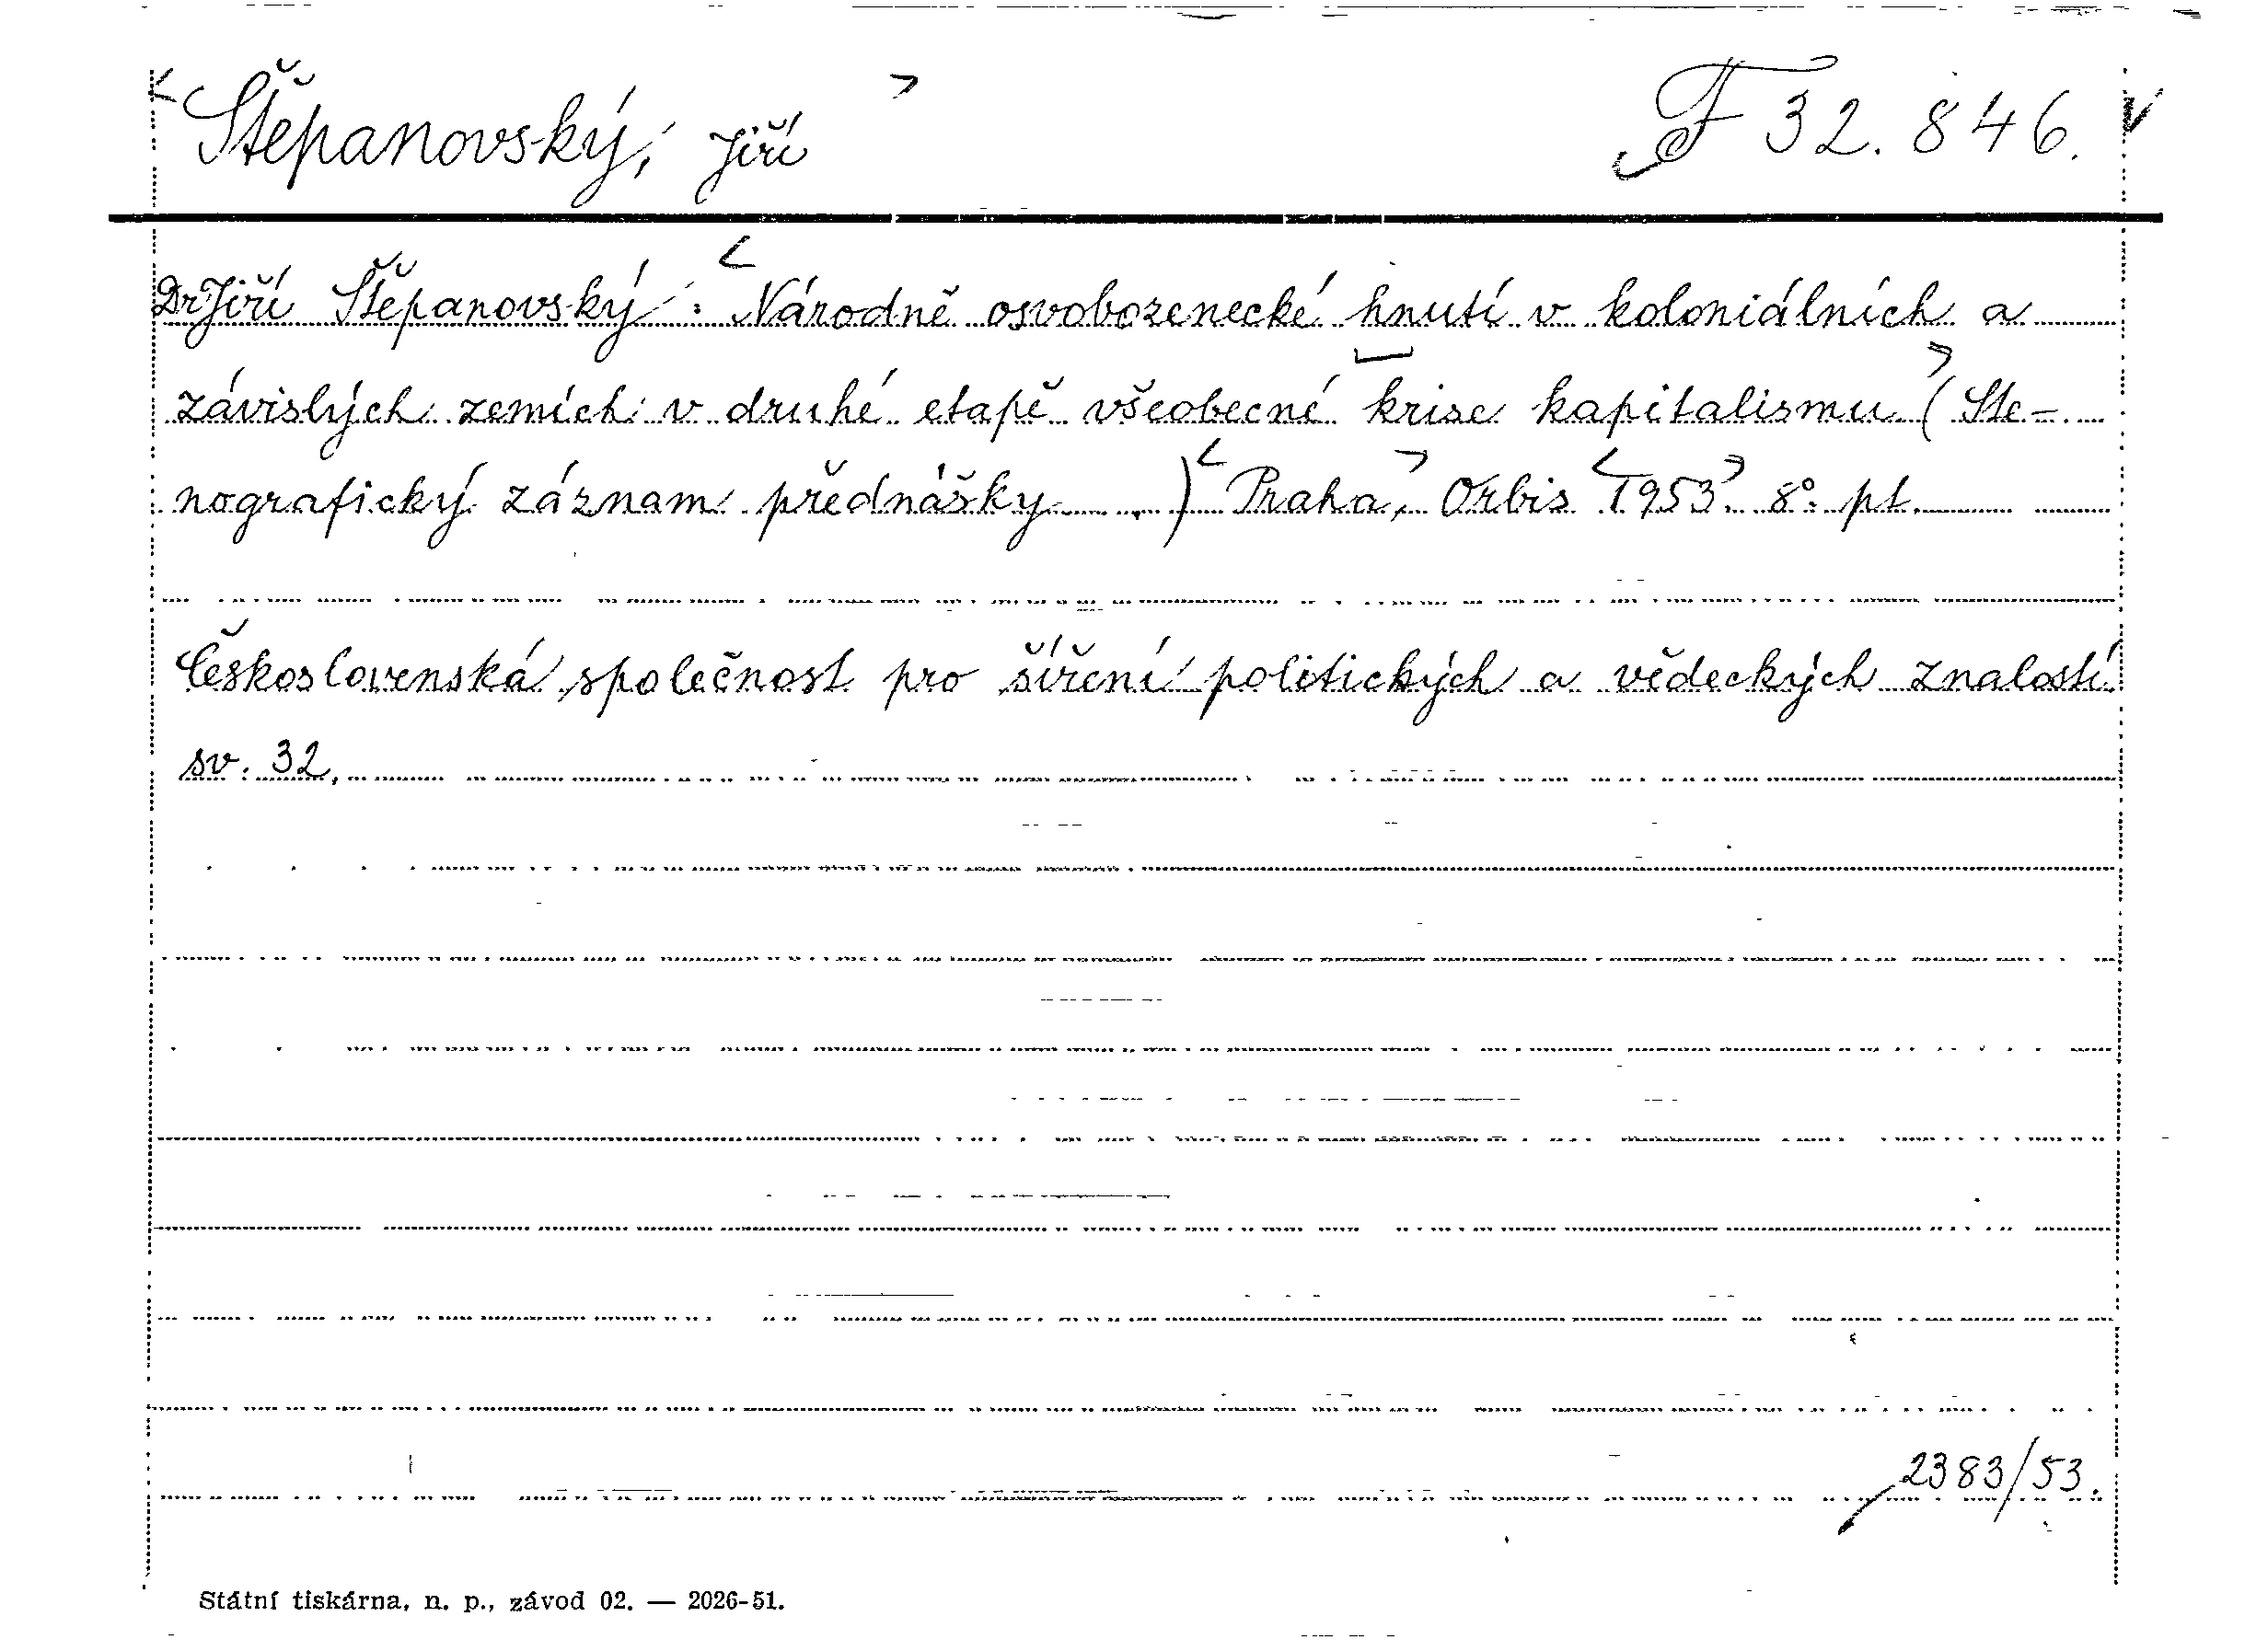 Štěpanovský, Jiří F 32.846.
Dr Jiří Štěpanovský: Národně osvobozenecké hnutí v koloniálních a
závislých zemích v druhé etapě všeobecné krise kapitalismu (Ste-
nografický záznam přednášky .) Praha, Orbis 1953. 8°. pt.
Československá společnost pro šíření politických a vědeckých znalostí.
sv. 32.
2383/53.
Státní tiskárna, n. p., závod 02. — 2026-51.